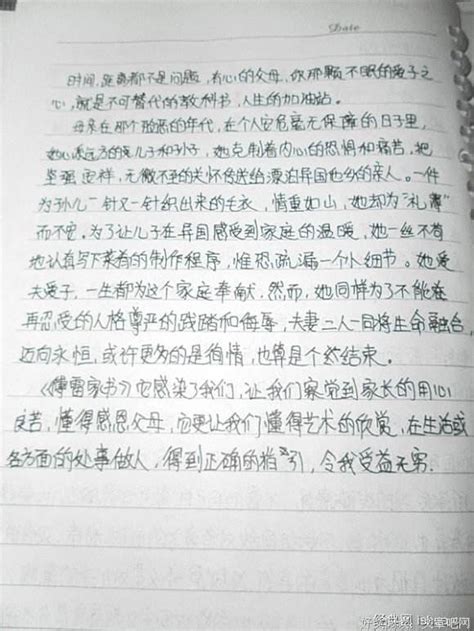 Date
时间、距离都不是问题，有心的父母、你那颗不眠的爱子之
心，就是不可替代的教科书，人生的加油站。
母亲在那个险恶的年代，在个人安危毫无保障的日子里，
她心系远方的儿子和孙子，她克制着内心的恐惧和痛苦，把
坚强 ，无微不至的关怀传送给漂泊异国他乡的亲人。一件
为孙儿一针又一针织出来的毛衣，情重如山，她却为“礼薄”
而不安。为了让儿子在异国感受到家庭的温暖，她一丝不苟
地认真写下菜肴的制作程序，惟恐疏漏一个小细节。她爱
夫爱子，一生都为这个家庭奉献，然而，她同样为了不能在
再忍受的人格尊严的践踏和侮辱，夫妻二人一同将生命融合，
迈向永恒，或许更多的是徇情，也算是个终结束。
《傅雷家书》也感染了我们，让我们察觉到家长的用心
良苦，懂得感恩父母，而更让我们懂得艺术的欣赏，在生活或
各方面的处事做人，得到正确的指引，令我受益无穷.